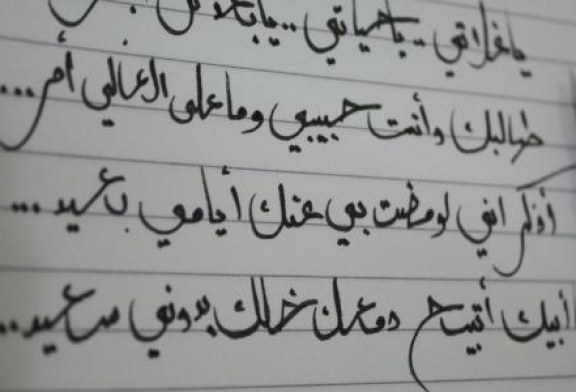 ياغلاتي .. ياحياتي ..
طالبك وأنت حبيبي وماعلى الغالي أمر ...
أذكر اني لو مضت بي عنك أيامي بعيد ...
أبيك أتبيح دمعك خلك بدوني سعيد ..